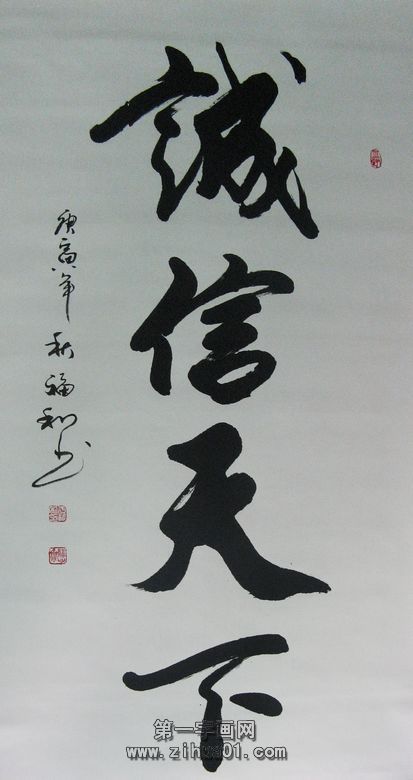 誠信天下
庚寅年秋福和书
第一字画网
www.zihua01.com